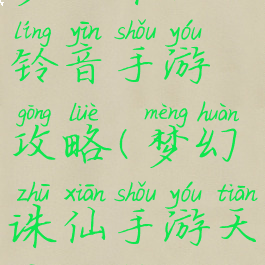 líng yīn shǒu yóu
铃音手游
gōng lüè mèng huàn
攻略(梦幻
zhū xiān shǒu yóu tiān
诛仙手游天